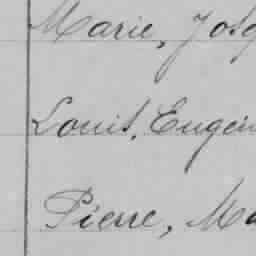 Marie, Jose
Louis, Eugèn
Pierre, Ma